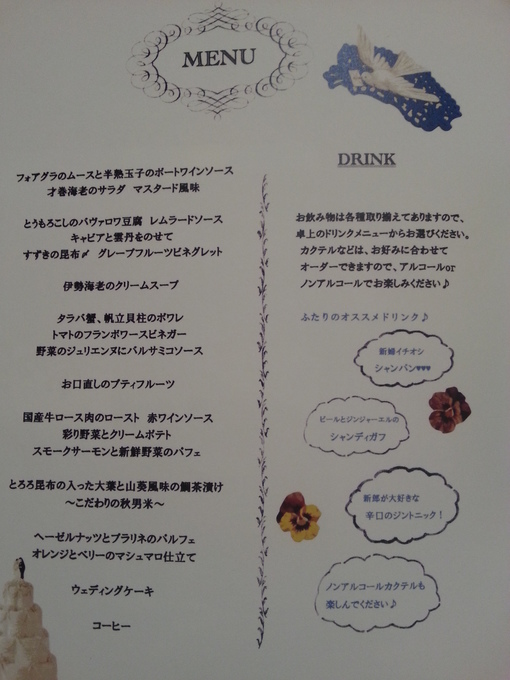 MENU
フォアグラのムースと半熟玉子のポートワインソース
才巻海老のサラダ マスタード風味
とうもろこしのバヴァロワ豆腐 レムラードソース
キャビアと雲丹をのせて
すずきの昆布〆 グレープフルーツビネグレット
伊勢海老のクリームスープ
タラバ蟹、帆立貝柱のポワレ
トマトのフランボワースビネガー
野菜のジュリエンヌにバルサミコソース
お口直しのプティフルーツ
国産牛ロース肉のロースト 赤ワインソース
彩り野菜とクリームポテト
スモークサーモンと新鮮野菜のパフェ
とろろ昆布の入った大葉と山葵風味の鯛茶漬け
～こだわりの秋男米～
ヘーゼルナッツとプラリネのパルフェ
オレンジとベリーのマシュマロ仕立て
ウェディングケーキ
コーヒー
DRINK
お飲み物は各種取り揃えてありますので、
卓上のドリンクメニューからお選びください。
カクテルなどは、お好みに合わせて
オーダーできますので、アルコールor
ノンアルコールでお楽しみください♪
ふたりのオススメドリンク♪
新婦イチオシ
シャンパン♥♥♥
ビールとジンジャーエールの
シャンディガフ
新郎が大好きな
辛口のジントニック！
ノンアルコールカクテルも
楽しんでください♪